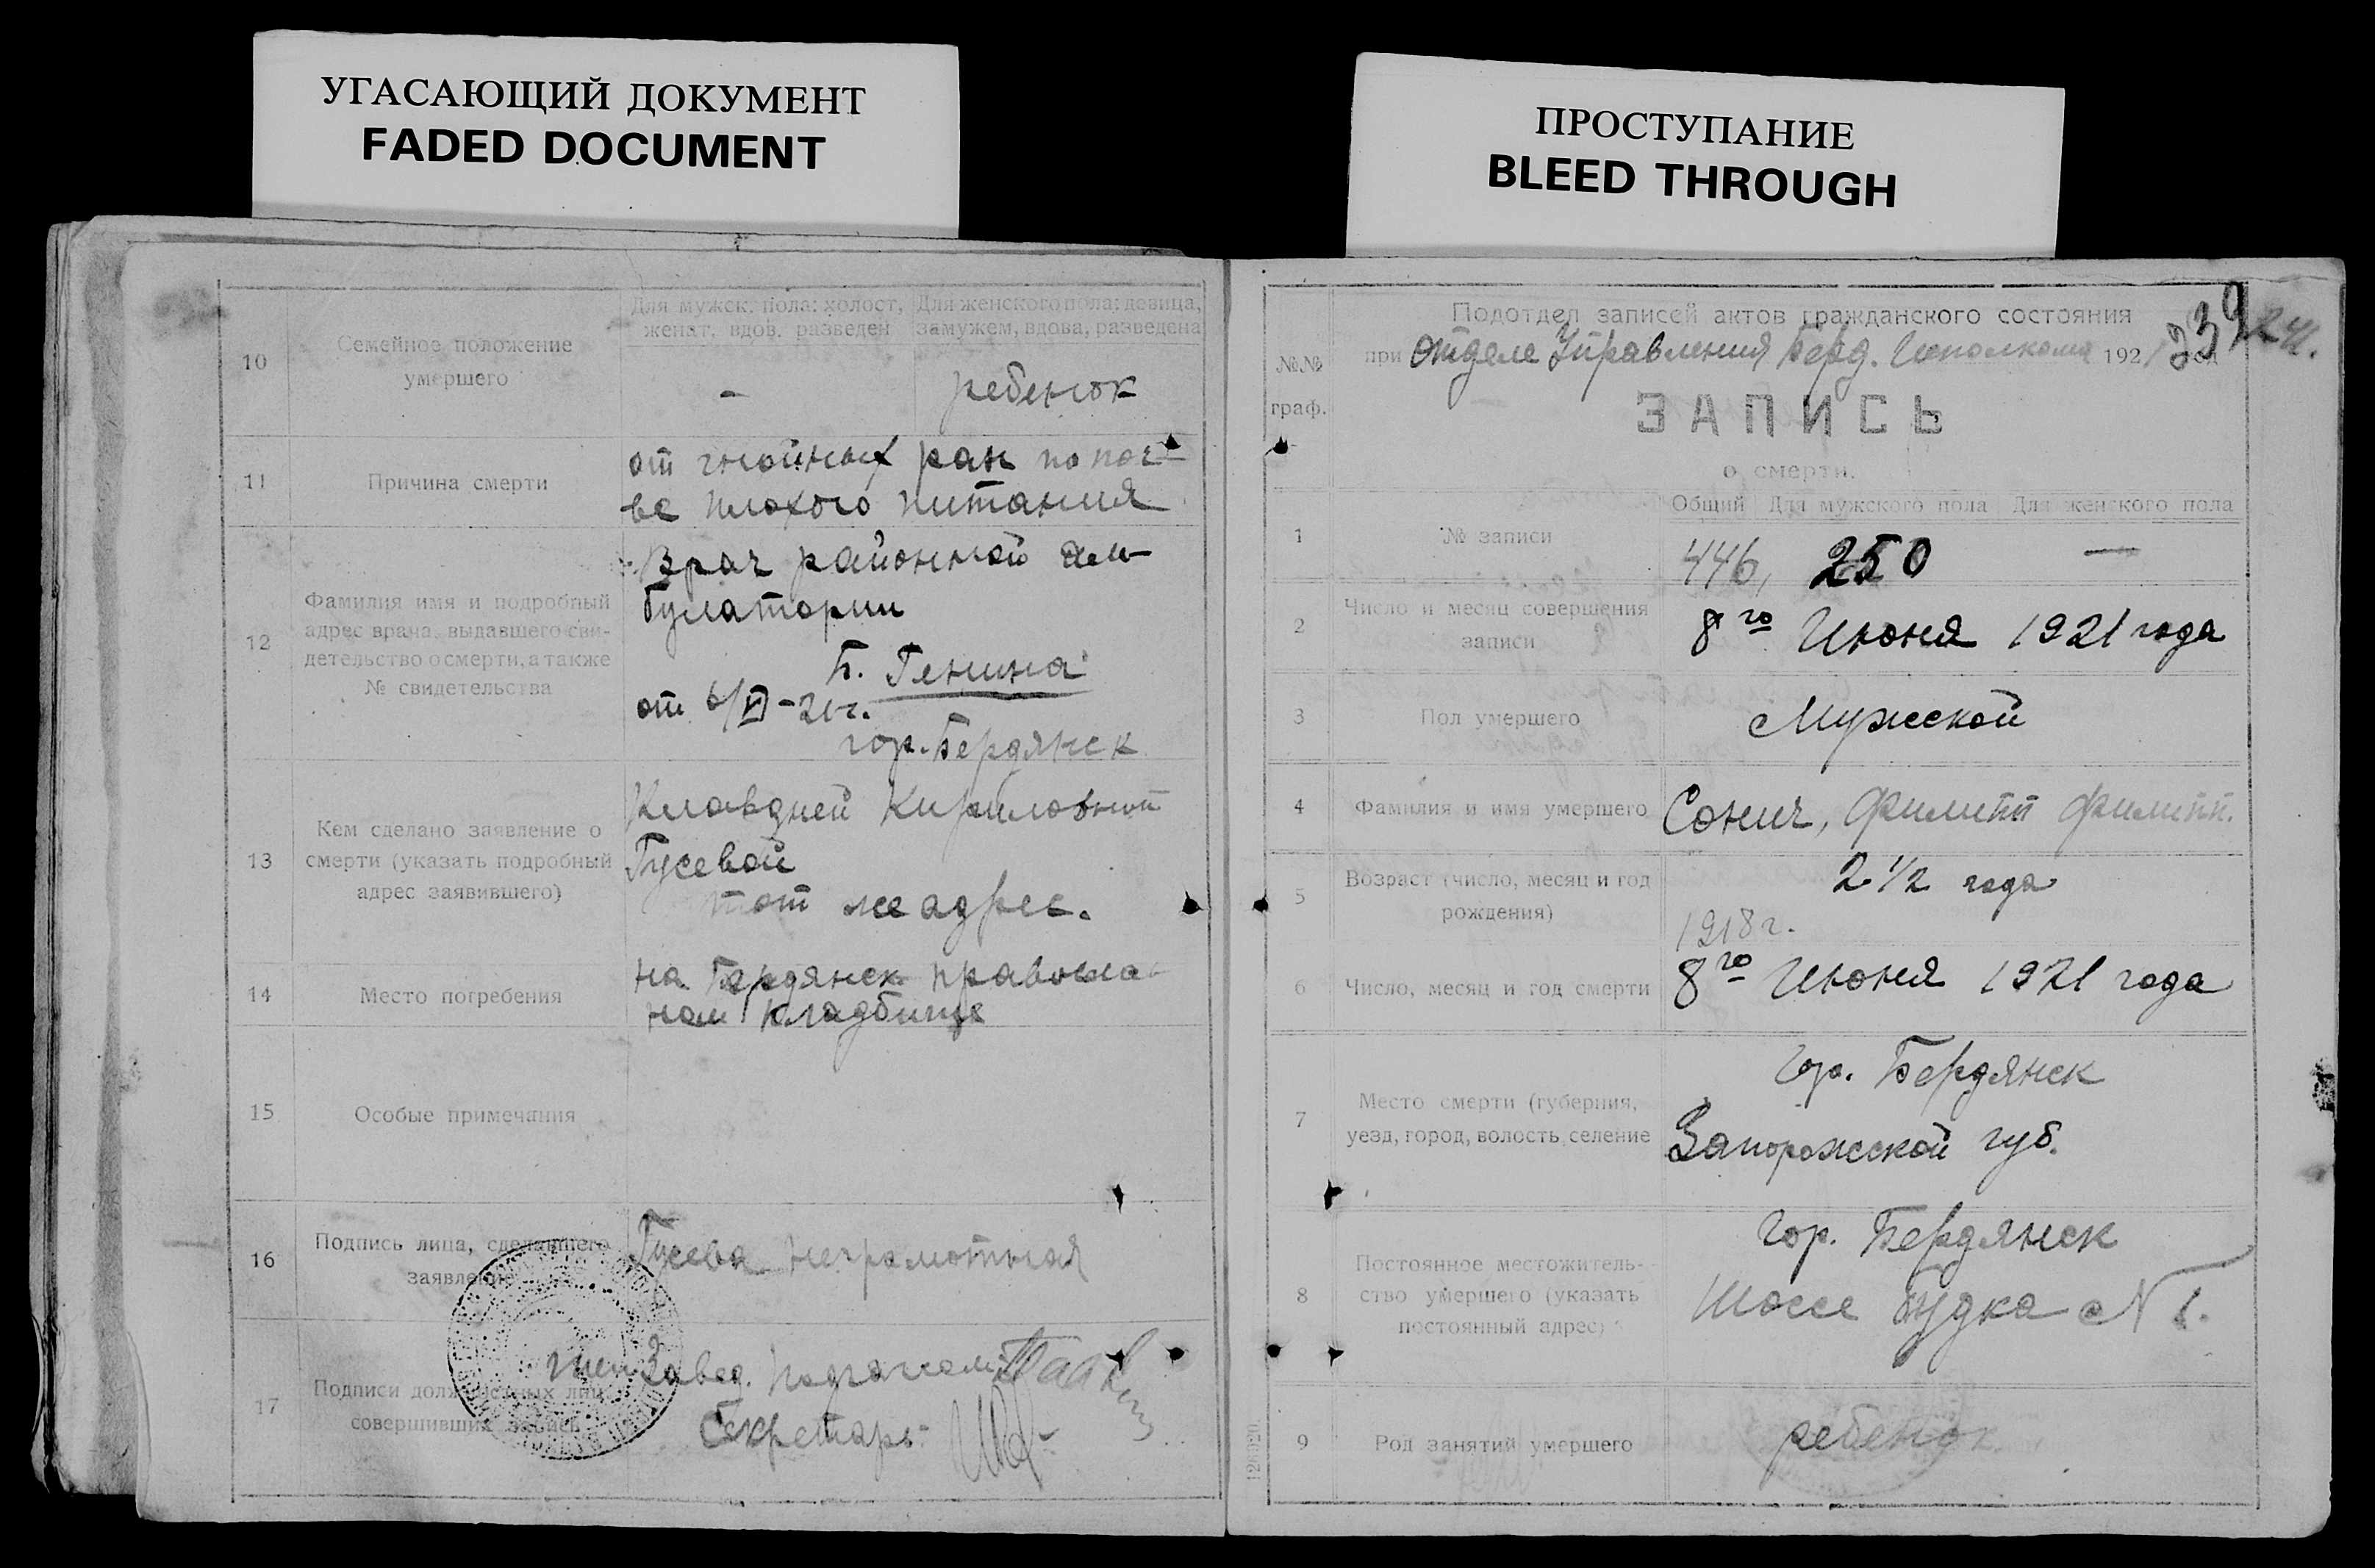 УГАСАЮЩИЙ ДОКУМЕНТ
FADED DOCUMENT
ПРОСТУПАНИЕ
BLEED THROUGH
10
Семейное положение
умершего
Для мужск. пола: холост,
женат, вдов. разведен
Для женского пола: девица,
замужем, вдова, разведена
-
ребенок
11
Причина смерти
от гнойных ран по поч-
ве плохого питания
12
Фамилия имя и подробный
адрес врача, выдавшего сви-
детельство о смерти, а также
№ свидетельства
Врач районной ам-
булатории
Б. Генина
от 6/VI-21г.
гор. Бердянск
13
Кем сделано заявление о
смерти (указать подробный
адрес заявившего)
Клавдией Кириловной
Гусевой
тот же адрес.
14
Место погребения
на Бердянск. правосла
ном кладбище
15
Особые примечания
16
Подпись лица, сделавшего
заявление
Гусева неграмотная
17
Подписи должностных лиц
совершивших запись
Завед. Подотделом
Секретарь
239
241.
№№
граф.
Подотдел записей актов гражданского состояния
при Отделе Управления Берд. Исполкома 1921 год
ЗАПИСЬ
о смерти.
1
№ записи
Общий
Для мужского пола
Для женского пола
446,
250
—
2
Число и месяц совершения
записи
8го Июня 1921 года
3
Пол умершего
Мужской
4
Фамилия и имя умершего
Сонич, Филипп Филипп.
5
Возраст (число, месяц и год
рождения)
2 1/2 года
1918 г.
6
Число, месяц и год смерти
8го Июня 1921 года
7
Место смерти (губерния,
уезд, город, волость, селение
Гор. Бердянск
Запорожской губ.
8
Постоянное местожитель-
ство умершего (указать
постоянный адрес)
Гор. Бердянск
Шоссе будка № 1.
9
Род занятий умершего
ребенок